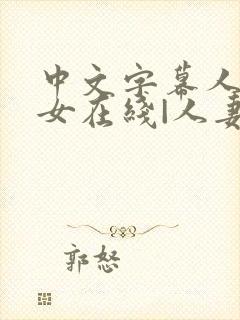 中文字幕人
女在线|人妻
郭怒